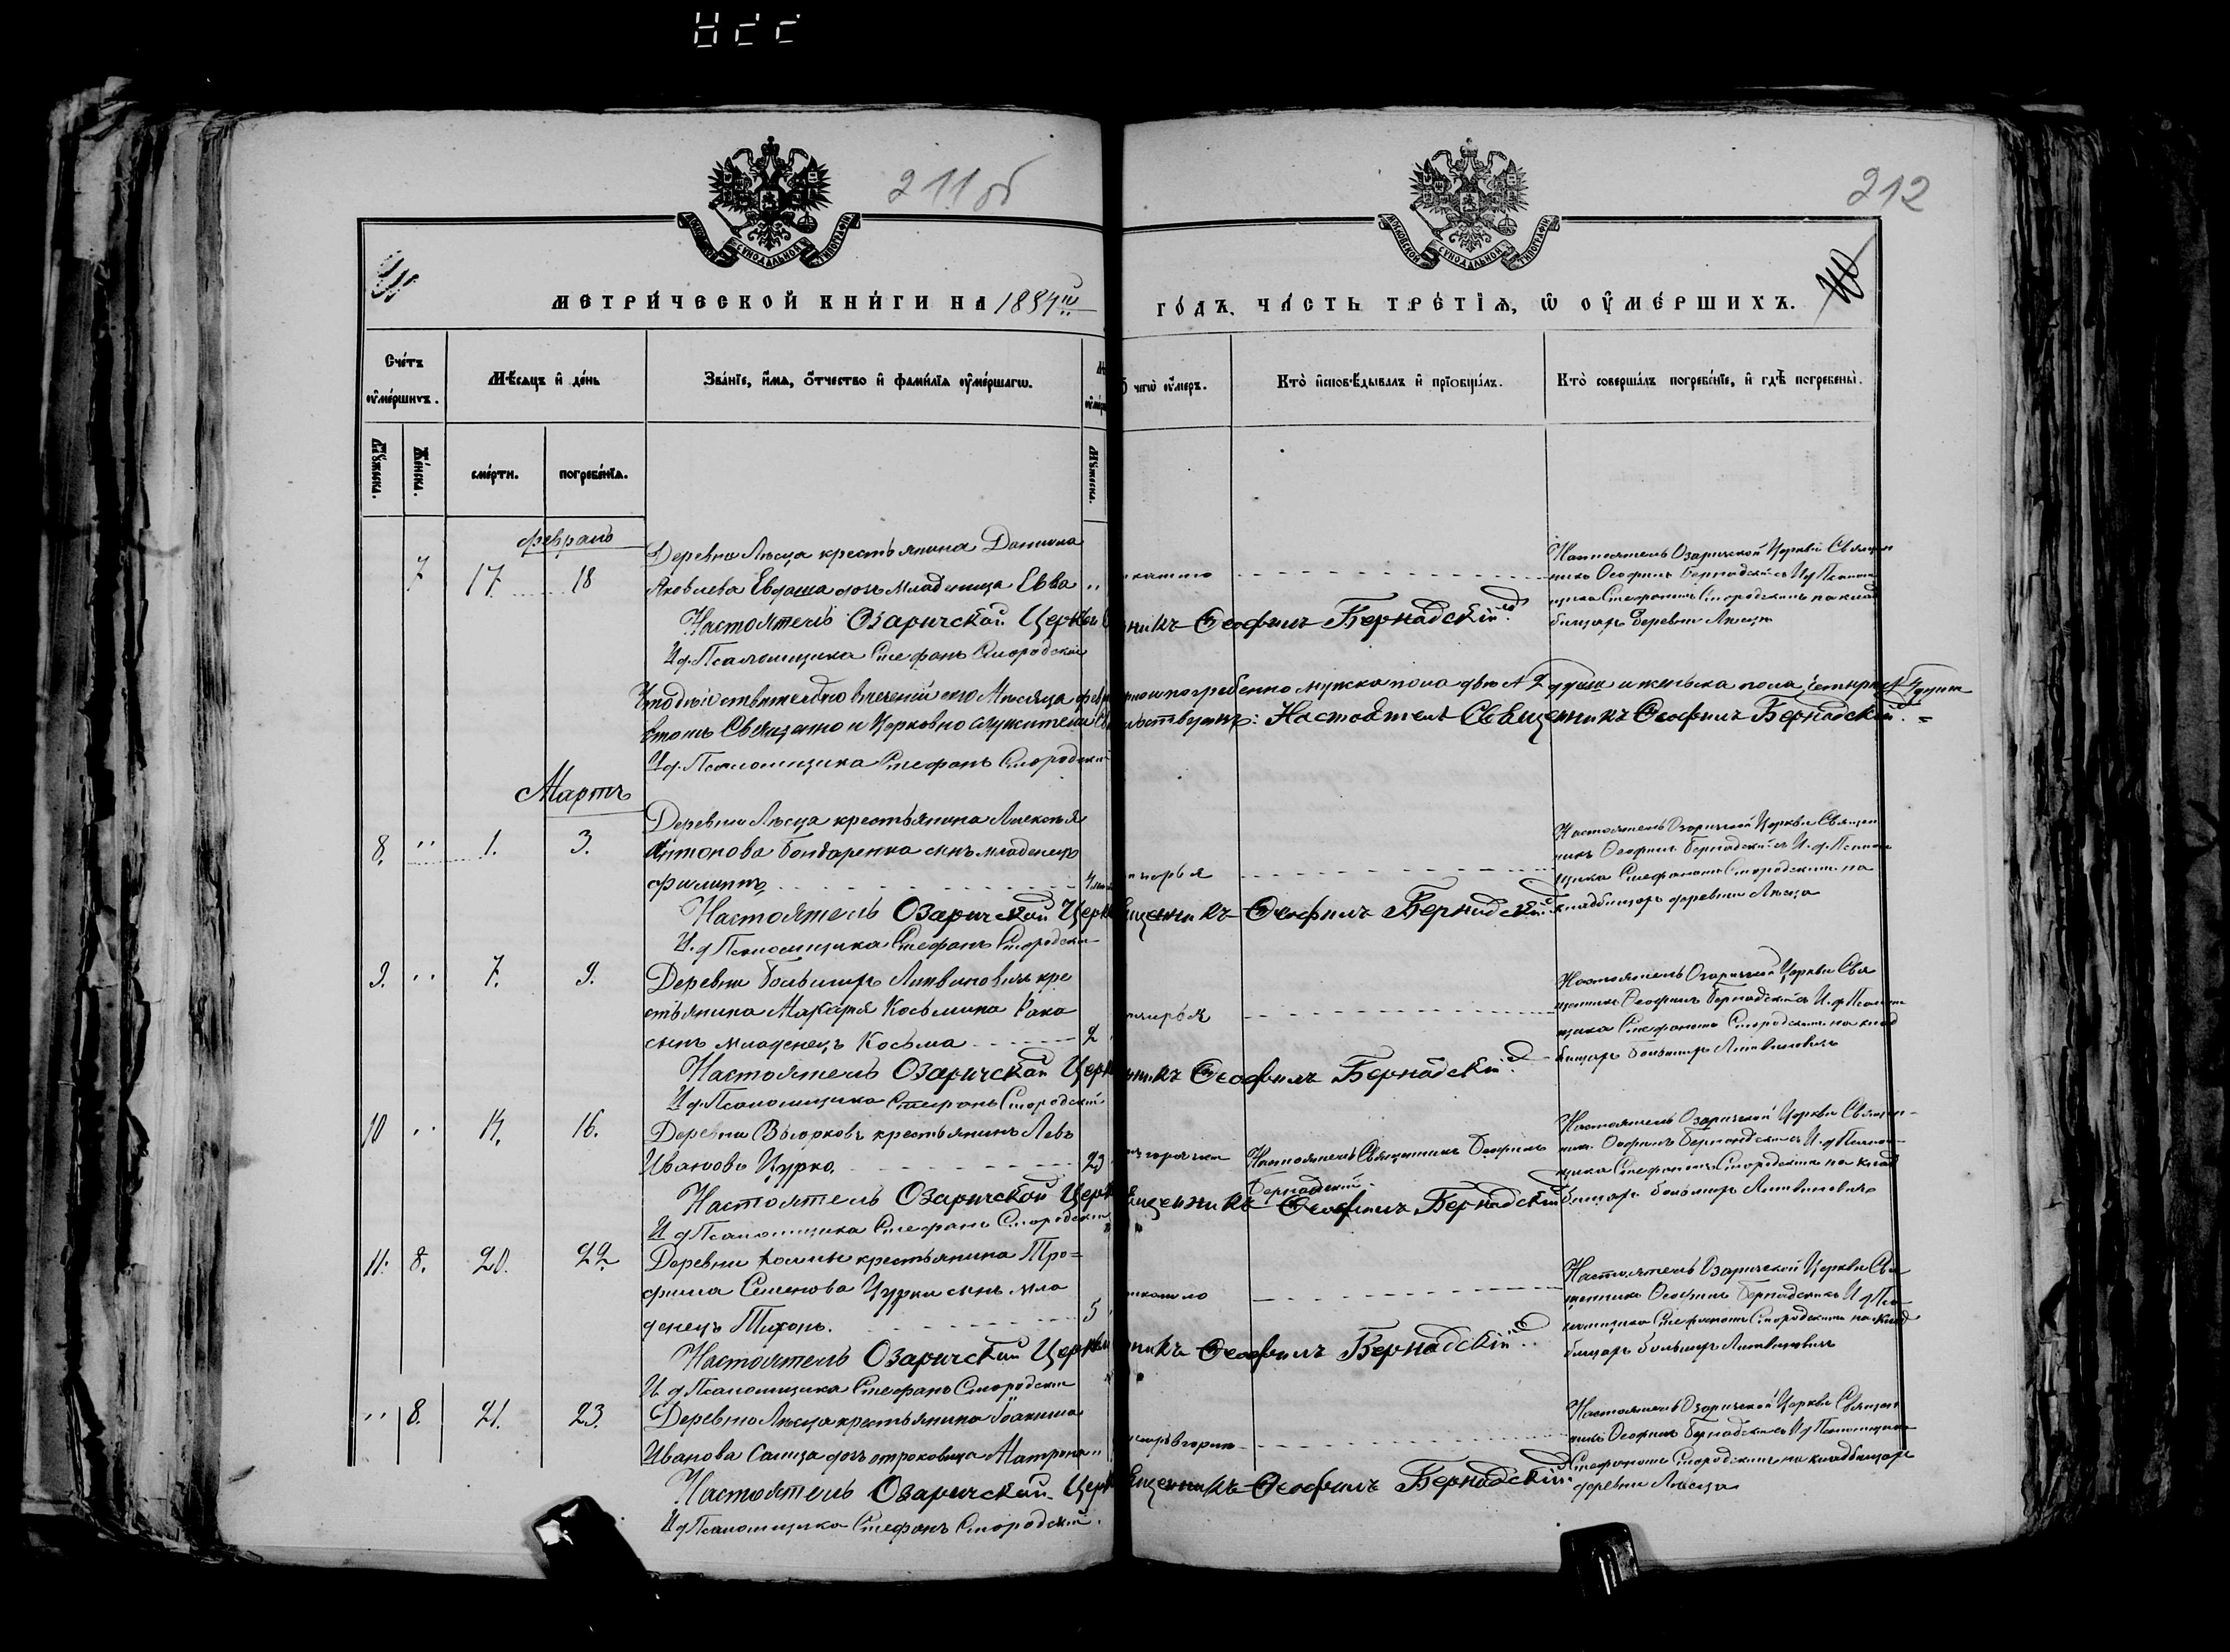 211 об
212
МОСКОВСКОЙ СУНОДАЛЬНОЙ ТИПОГРАФІИ
МОСКОВСКОЙ СУНОДАЛЬНОЙ ТИПОГРАФІИ
МЕТРИ́ЧЕСКОЙ КНИ́ГИ НА 1884й
ГО́ДЪ, ЧА́СТЬ ТРЕ́ТІѦ, Ѡ ОУМЕ́РШИХЪ.
Сче́тъ оуме́ршихъ.
Мѣ́сяцъ и де́нь
Зва́нїе, и́мя, о́тчество и фами́лїя оуме́ршагѡ.
чегѡ̀ оу́меръ.
Кто̀ исповѣ́дывалъ и прїобща́лъ.
Кто̀ соверша́лъ погребе́нїе, и гдѣ̀ погребены̀.
Мꙋ́жеска.
Же́нска.
сме́рти.
погребе́нїя.
Мꙋ́жеска.
февраль
7 17 18
Деревни Лѣсца крестьянина Даниила
Яковлева Евдаша дочь младеница Евва
Настоятель Озаричской Церкви
никъ Ѳеофилъ Бернадскій
И д. Псаломщика Стефанъ Смородскій
Настоятель Озаричской Церкви Священ
никъ Ѳеофилъ Бернадскій съ И д Псалом
щика Стефаномъ Смородскимъ на клад
бищѣ деревни Лѣсца
Что дѣйствительно въ теченіи сего Мѣсяца
погребенно мужска пола двѣ 2 души и женска пола четыре 4 души
въ томъ Священно и Церковно служители
ствуютъ: Настоятель Священникъ Ѳеофилъ Бернадскій
И д. Псаломщика Стефанъ Смородскій
Мартъ
8. " 1. 3.
Деревни Лѣсца крестьянина Алексѣя
Антонова Бондаренка сынъ младенецъ
Филиппъ
Настоятель Озаричской Церк
щенникъ Ѳеофилъ Бернадскій
И. д Псаломщика Стефанъ Смородскій
Настоятель Озаричской Церкви Священ
никъ Ѳеофилъ Бернадскій съ И. д. Псалом
щика Стефаномъ Смородскимъ на
кладбищѣ деревни Лѣсца
9. " 7. 9.
Деревни Большихъ Литвиновичъ кре
стьянина Макарія Косьмина Рака
сынъ младенецъ Косьма 2
Настоятель Озаричской Церк
никъ Ѳеофилъ Бернадскій
И д. Псаломщика Стефанъ Смородскій
Настоятель Озаричской Церкви Свя
щенникъ Ѳеофилъ Бернадскій съ И. д. Псалом
щика Стефаномъ Смородскимъ на клад
бищѣ Большихъ Литвиновичъ
10 " 14. 16.
крестьянинъ Левъ
Ивановъ Цурко. 23
горячки
Настоятель Священникъ Ѳеофилъ
Бернадскій
Настоятель Озаричской Церк
щенникъ Ѳеофилъ Бернадскій
И д Псаломщика Стефанъ Смородскій
Настоятель Озаричской Церкви Священ-
никъ Ѳеофилъ Бернадскій съ И. д Псалом-
щика Стефаномъ Смородскимъ на клад
бищѣ Большихъ Литвиновичъ
11. 8. 20. 22
Деревни крестьянина Тро=
фима Семенова Цурки сынъ мла
денецъ Тихонъ. 5
Настоятель Озаричской Церкви
никъ Ѳеофилъ Бернадскій
И д Псаломщика Стефанъ Смородскій
Настоятель Озаричской Церкви Свя
щенникъ Ѳеофилъ Бернадскій съ И д Пса-
ломщика Стефаномъ Смородскимъ на клад
бищѣ Большихъ Литвиновичъ
" 8. 21. 23.
Деревни Лѣсца крестьянина Іоакима
Иванова дочь отроковица Матрона
Настоятель Озаричской Церк
щенникъ Ѳеофилъ Бернадскій
И д Псаломщика Стефанъ Смородскій.
Настоятель Озаричской Церкви Священ
никъ Ѳеофилъ Бернадскій съ И д Псаломщика
Стефаномъ Смородскимъ на кладбищѣ
деревни Лѣсца